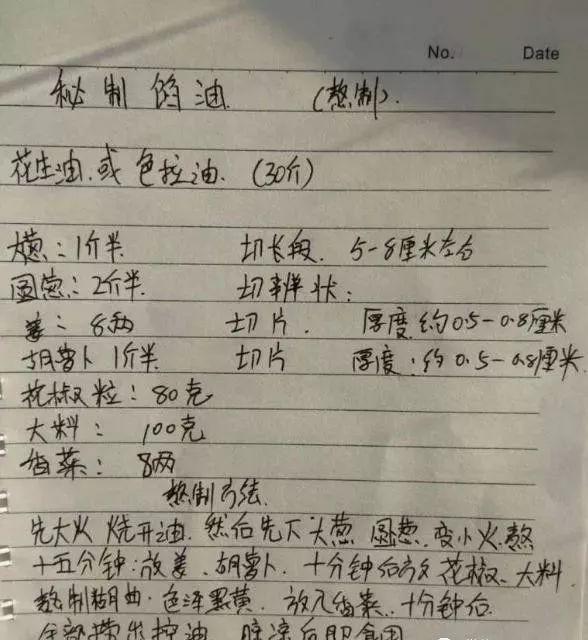 No. Date
秘制馅油 (熬制).
花生油.或色拉油. (30斤)
大葱:1斤半 切长段. 5-8厘米左右
圆葱:2斤半. 切瓣状:
姜: 8两 切片. 厚度.约0.5-0.8厘米
胡萝卜1斤半 切片 厚度:约0.5-0.8厘米.
花椒粒:80克
大料: 100克
香菜: 8两
熬制方法.
先大火烧开油.然后先下大葱.圆葱.变小火.熬
十五分钟.放姜.胡萝卜.十分钟后放花椒.大料
熬制糊曲.色泽黑黄.放入香菜.十分钟后.
全部捞出控油.晾凉后即食用